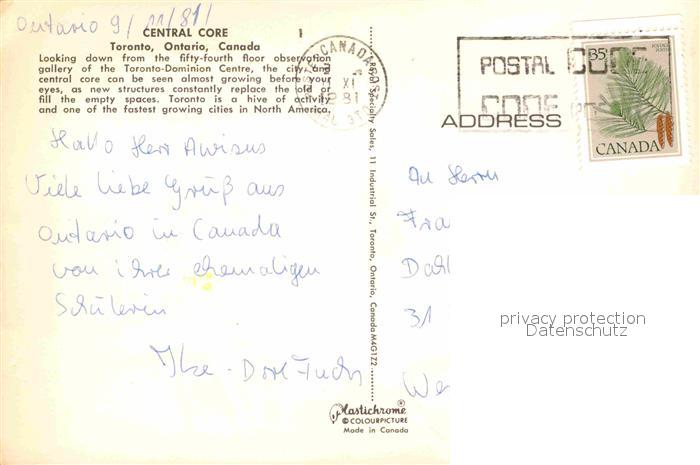 Ontario 9/11/81/
CENTRAL CORE
Toronto, Ontario, Canada
Looking down from the fifty-fourth floor observation
gallery of the Toronto-Dominion Centre, the city and
central core can be seen almost growing before your
eyes, as new structures constantly replace the old or
fill the empty spaces. Toronto is a hive of activity
and one of the fastest growing cities in North America.
Hallo Herr
Viele liebe Grüß aus
Ontario in Canada
von ihrer ehemaligen
Schülerin
CANADA
XI
81
POSTAL CODE
CODE
35
CANADA
ADDRESS
An Herrn
Fra
Dahl
31
We
privacy protection
Datenschutz
Specialty Sales, 11 Industrial St., Toronto, Ontario, Canada M4G1Z2
Plastichrome®
© COLOURPICTURE
Made in Canada